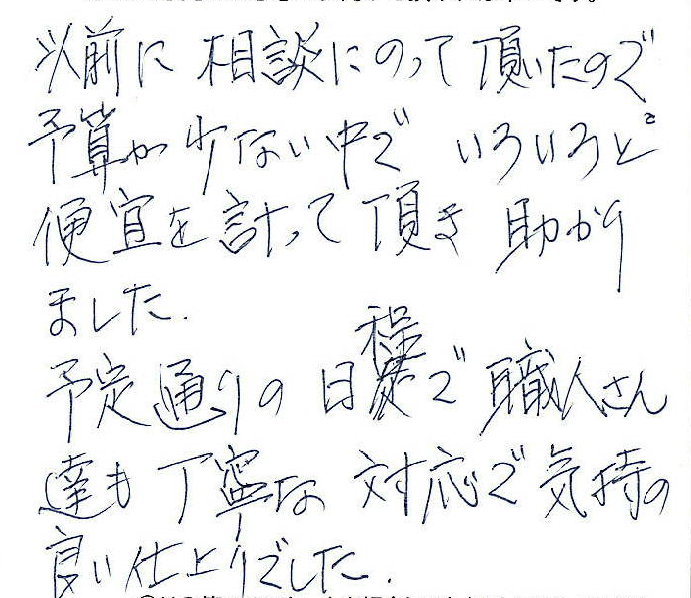 以前に 相談にのって 頂いたので
予算が 少ない中で いろいろと
便宜を 計って 頂き 助かり
ました.
予定通りの 日程で 職人さん
達も 丁寧な 対応で 気持の
良い 仕上りでした.